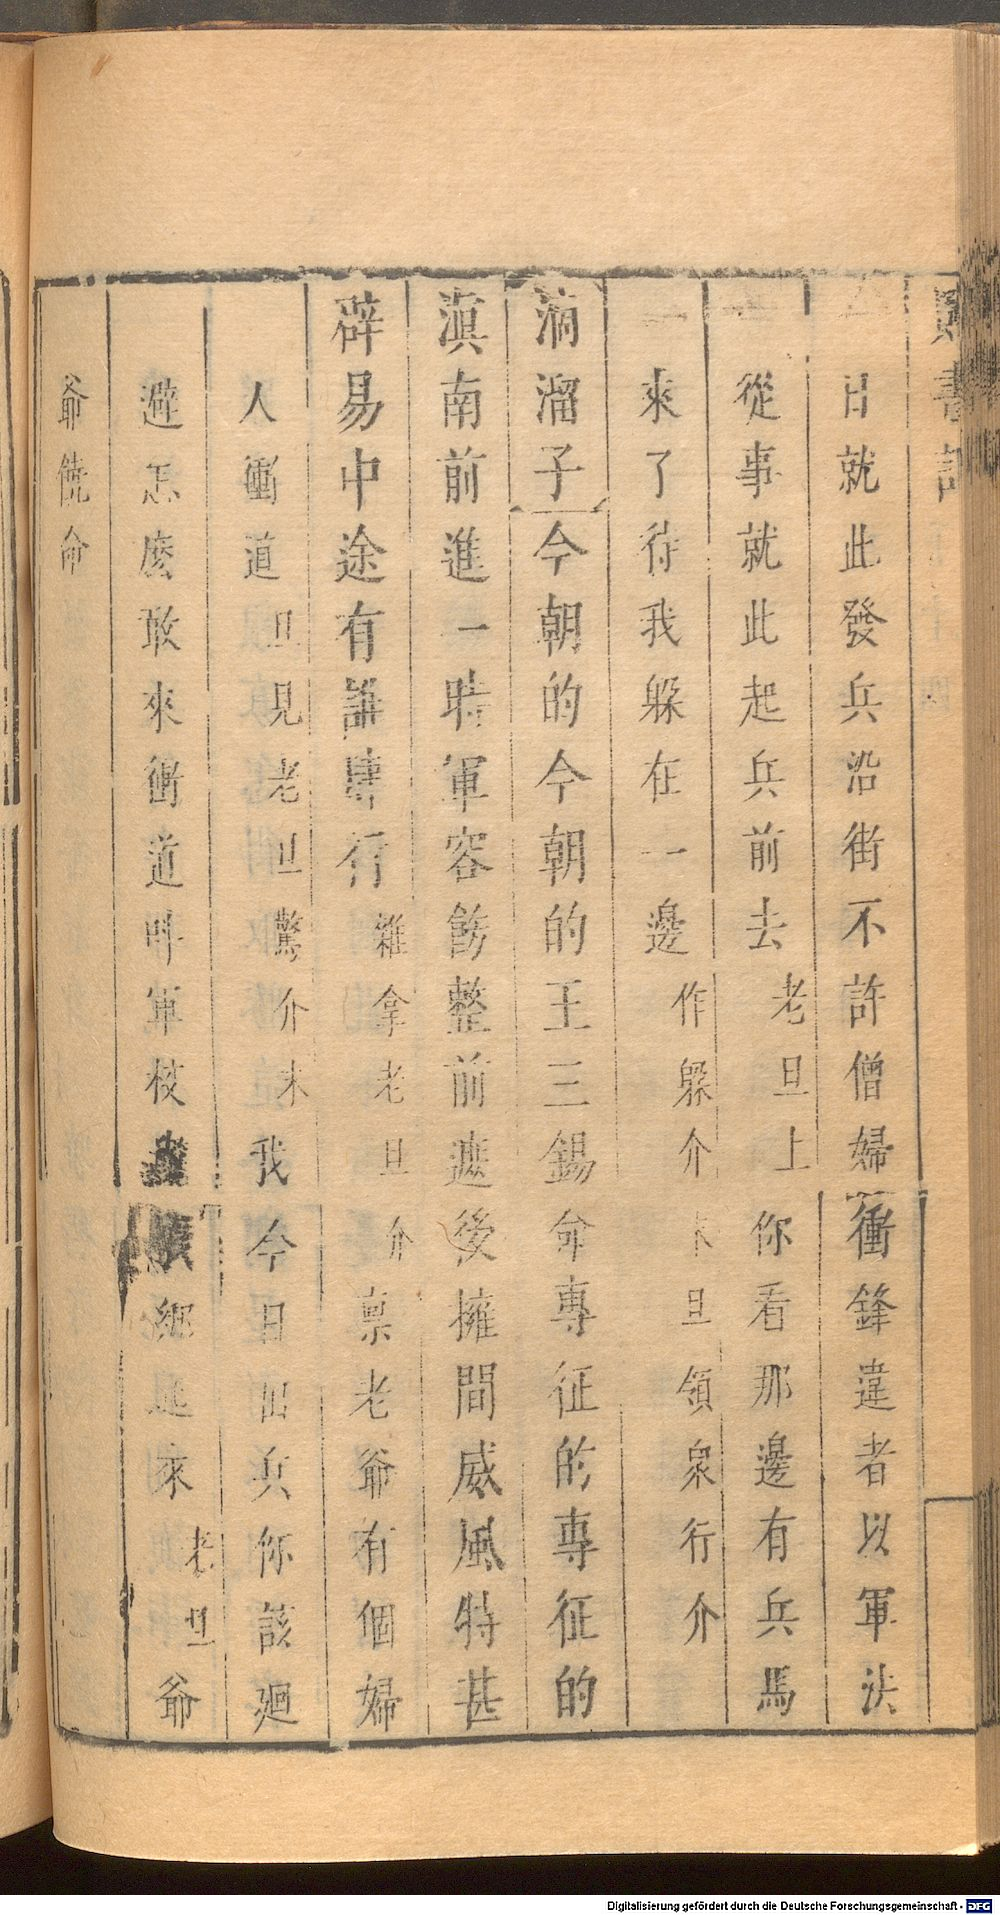 日就此發兵沿街不許僧婦衝鋒違者以軍法
從事就此起兵前去老旦上你看那邊有兵馬
來了待我躲在一邊作躲介末旦領衆行介
滴溜子今朝的今朝的王三錫命專征的專征的
滇南前進一時軍容飭整前遮後擁間威風特甚
辟易中途有誰肆行雜拿老旦介禀老爺有個婦
人衝道旦見老旦驚介末我今日出兵你該廻
避怎麼敢來衝道叫軍校綁來老旦爺
爺饒命
Digitalisierung gefördert durch die Deutsche Forschungsgemeinschaft - DFG